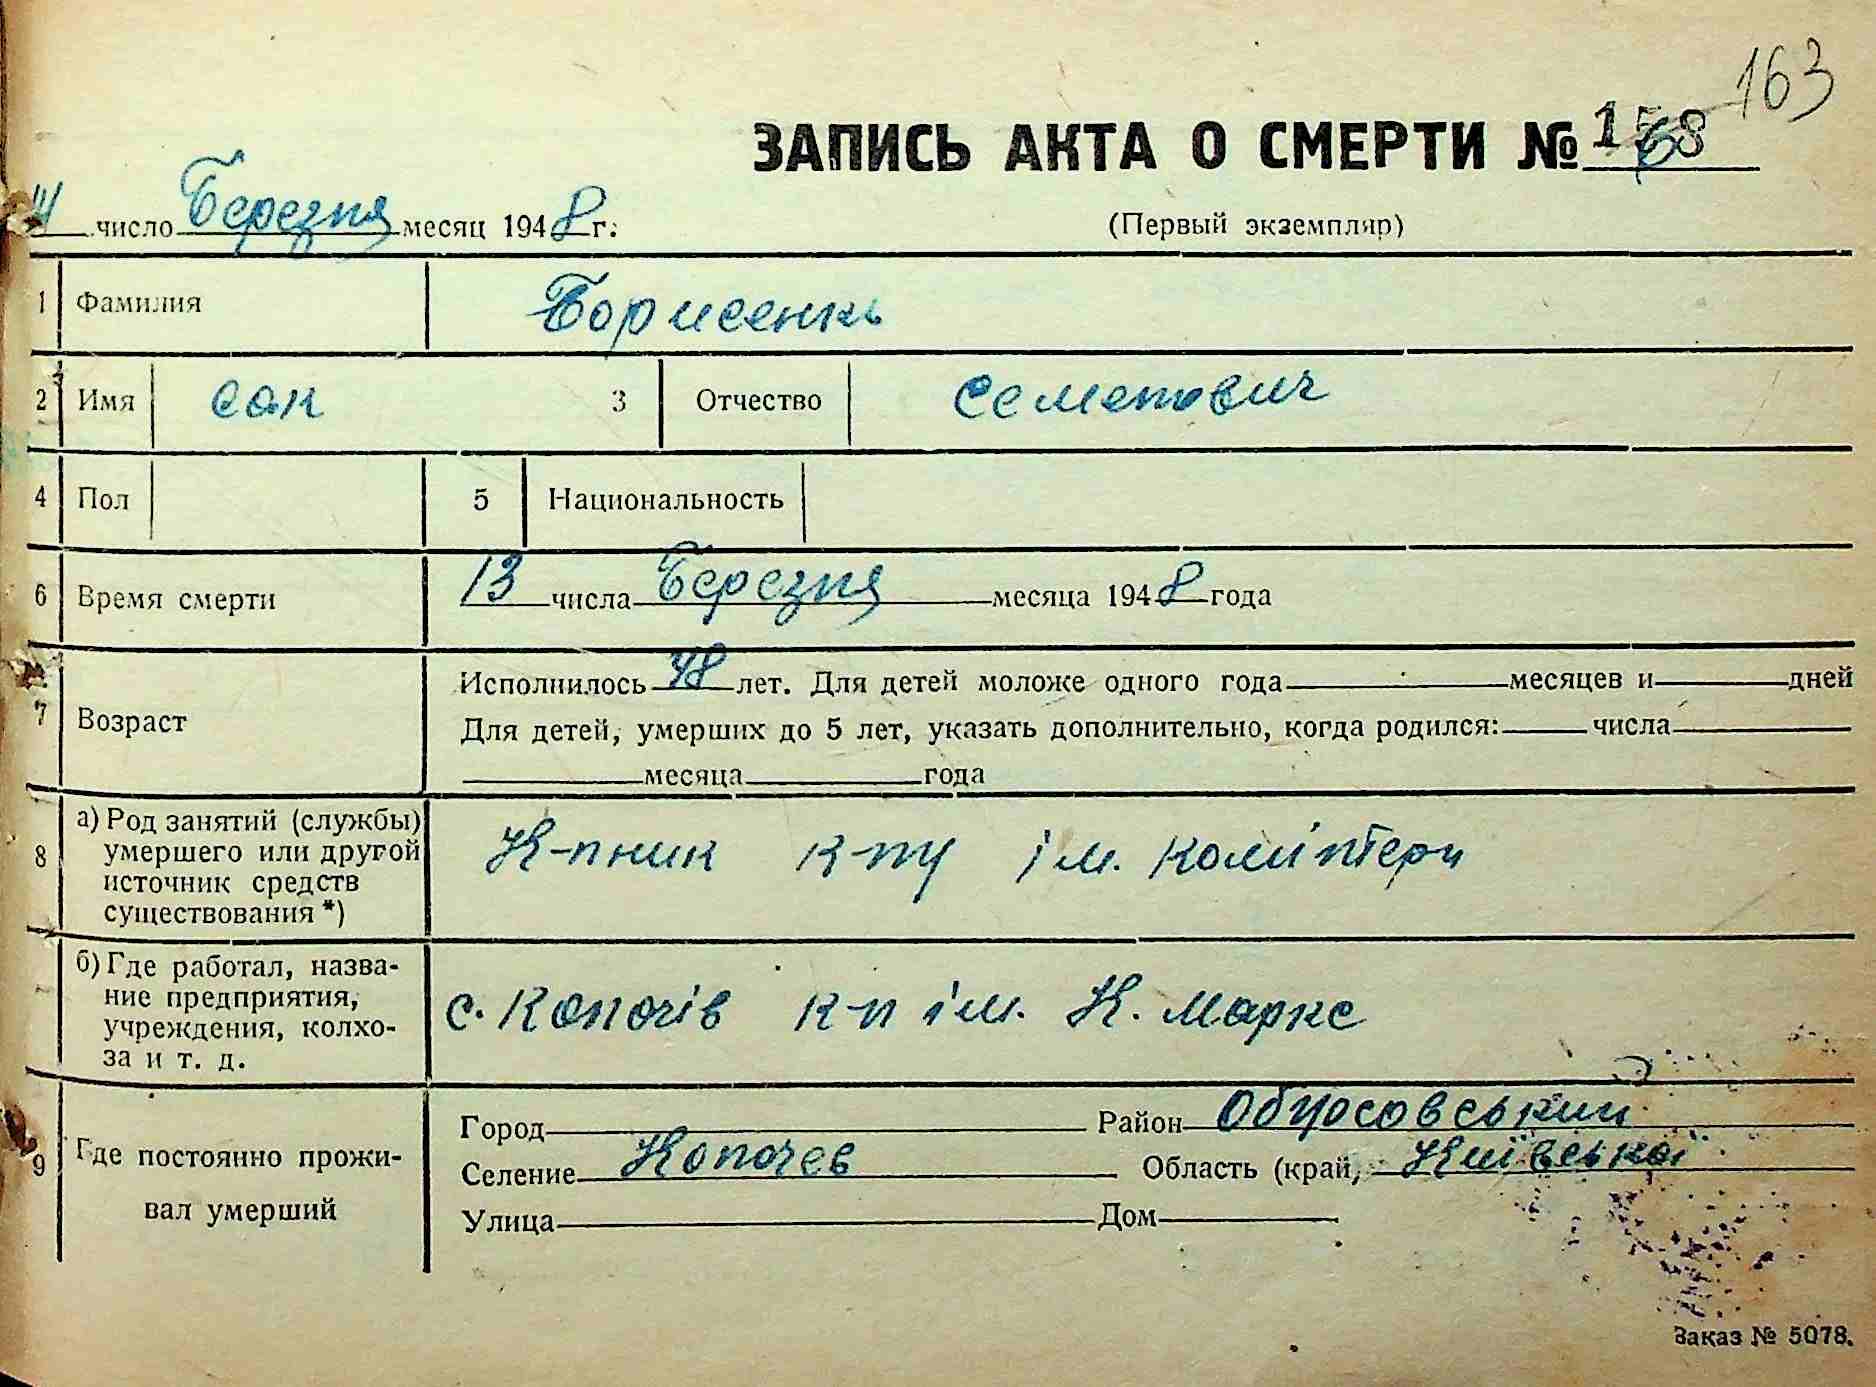 163
ЗАПИСЬ АКТА О СМЕРТИ №
число Березня месяц 1948 г.
(Первый экземпляр)
1 Фамилия Борисенко
2 Имя сак 3 Отчество Семенович
4 Пол 5 Национальность
6 Время смерти 13 числа Березня месяца 1948 года
7 Возраст
Исполнилось 48 лет. Для детей моложе одного года месяцев и дней
Для детей, умерших до 5 лет, указать дополнительно, когда родился: числа
месяца года
8 а) Род занятий (службы)
умершего или другой
источник средств
существования *)
К-пник к-пу ім. комінтерн
б) Где работал, назва-
ние предприятия,
учреждения, колхо-
за и т. д.
с. Копачів к-п ім. К. Маркс
9 Где постоянно прожи-
вал умерший
Город Район
Селение Копачев Область (край) Київської
Улица Дом
Заказ № 5078.